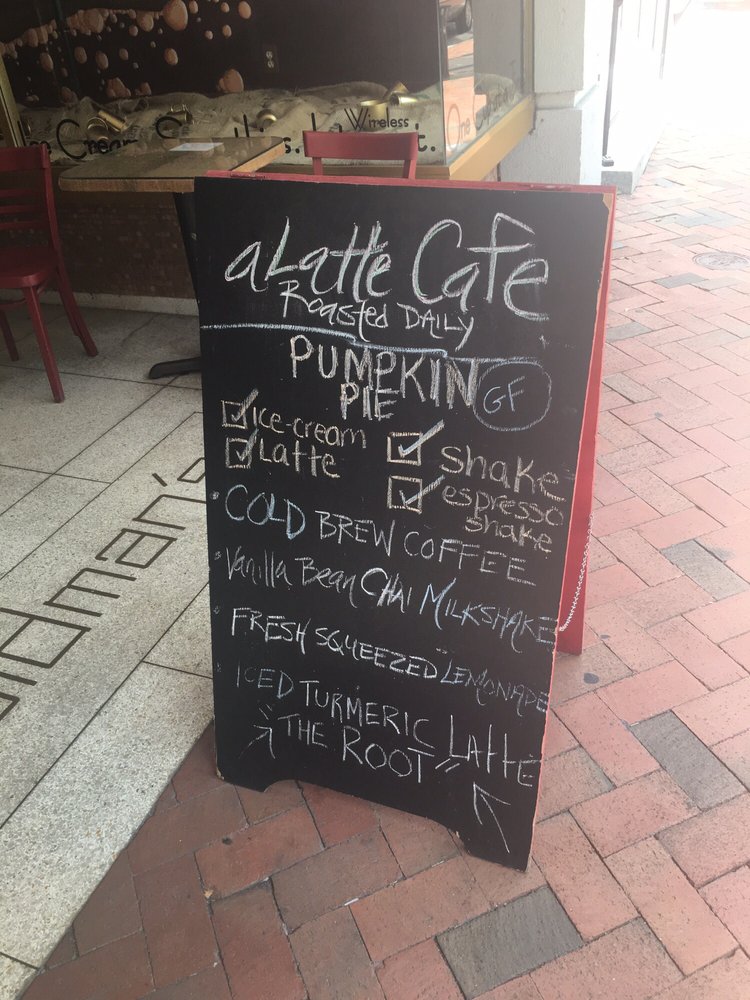 Wireless
aLatte Cafe
Roasted DAILY
PUMPKIN GF
PIE
ice-cream
Latte
shake
espresso
shake
COLD BREW COFFEE
Vanilla Bean CHAI MILKSHAKE
FRESH SQUEEZED LEMONADE
ICED TURMERIC LATTE
"THE ROOT"
ldman's